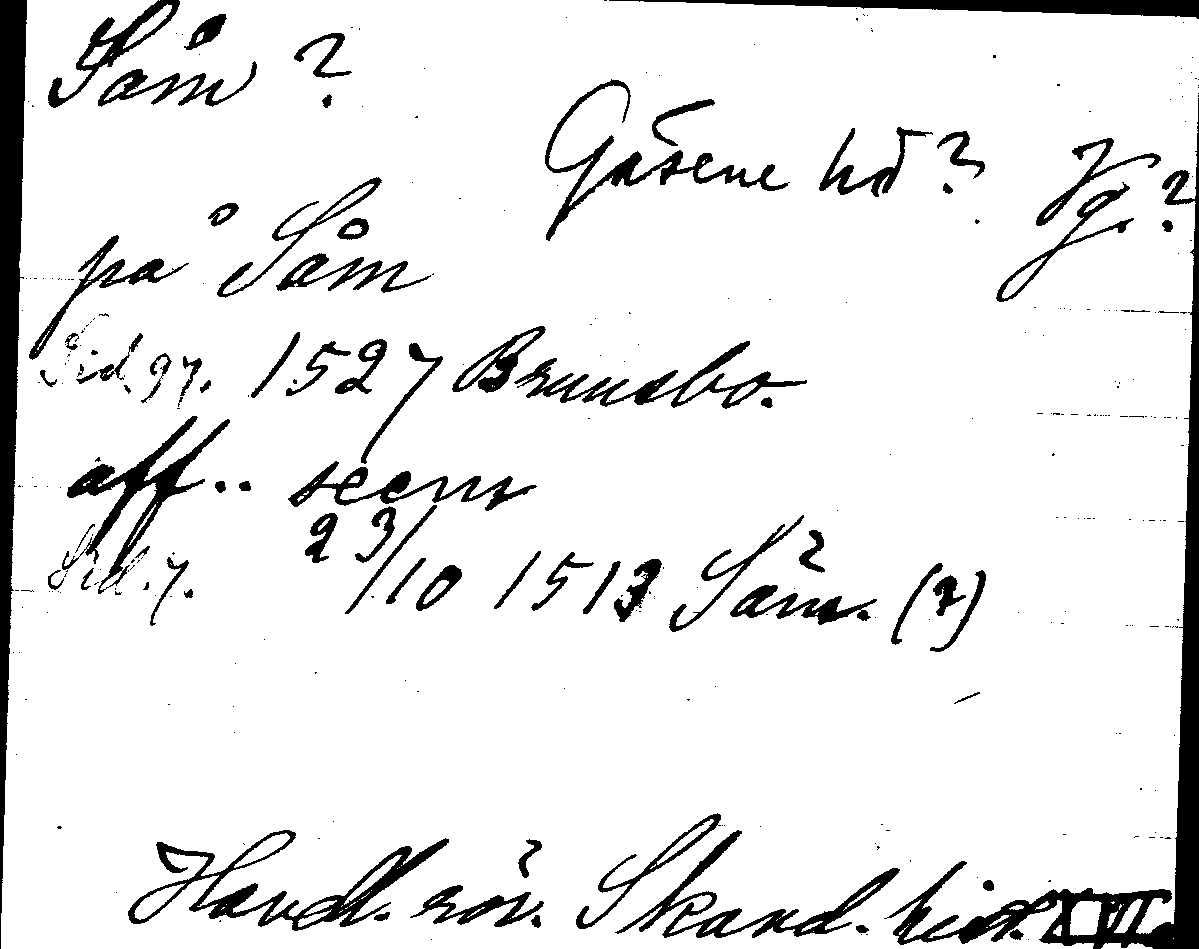 Såm ?
Gäsene hd ? Vg. ?
på Såm
Sid. 97. 1527 Brunsbo.
aff.. seem
Sid. 7. 23/10 1513 Säm. (?)
Handl. rör. Skand. hist. XVI.